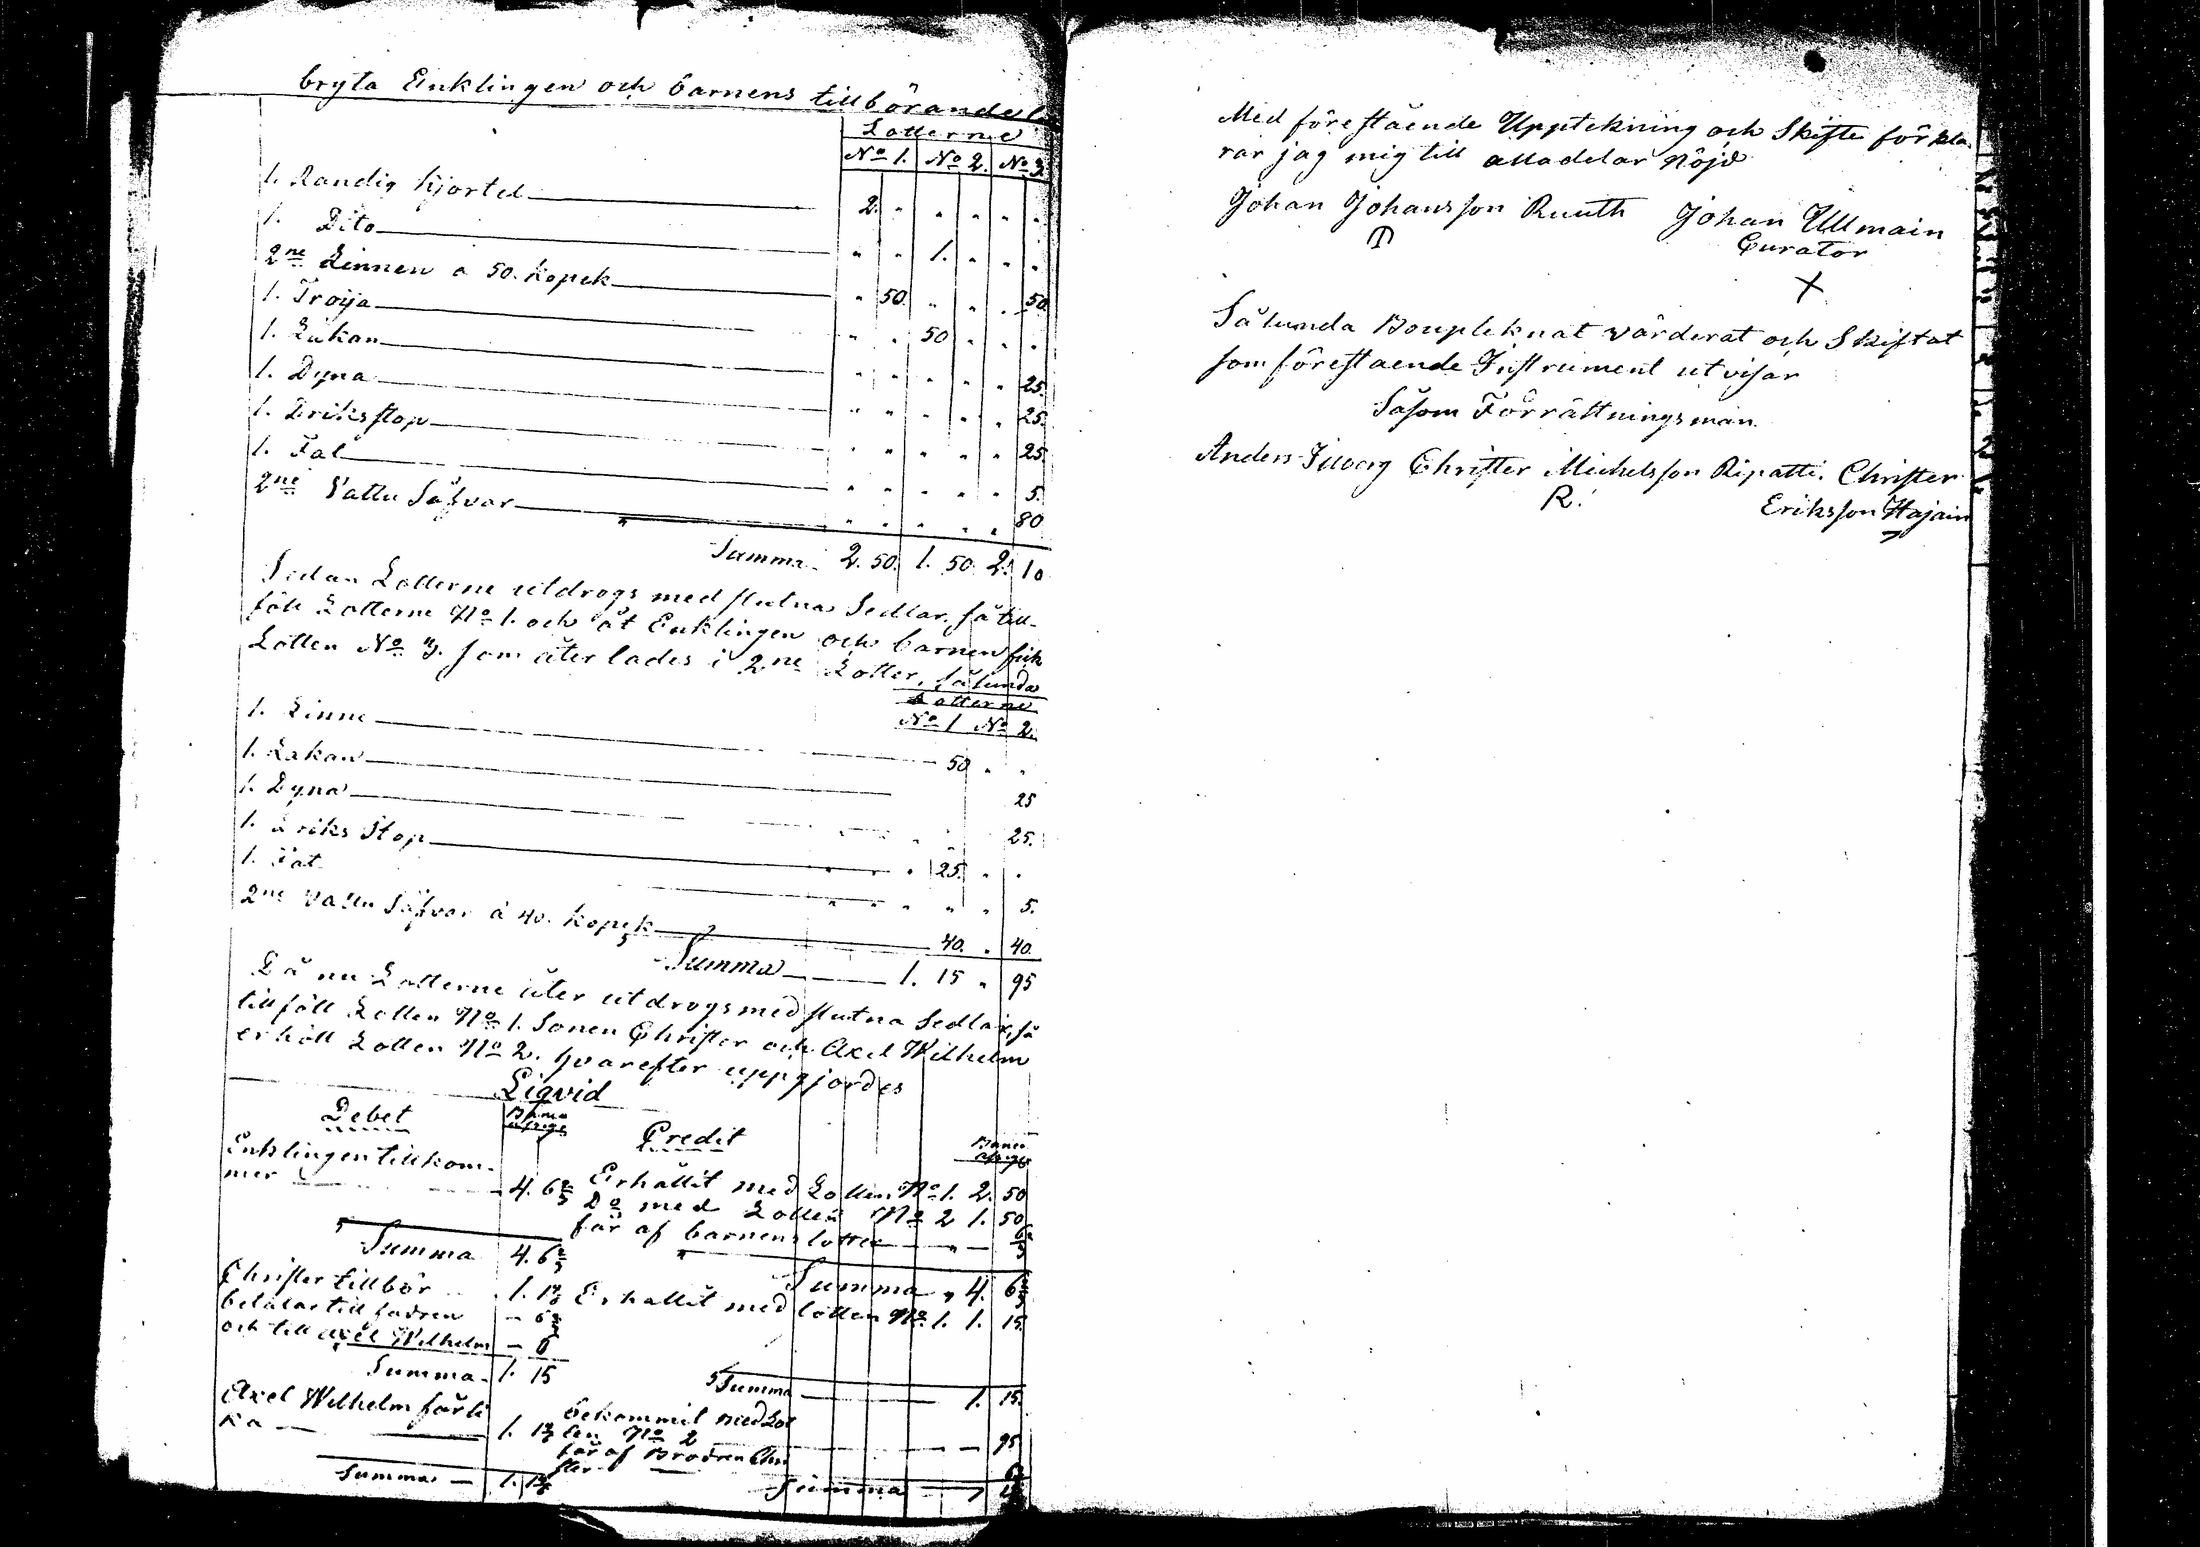 bryta Enklingen och barnens tillbörande
Lotterne
No 1. No 2. No 3.
1. Randig Kjortel 2. " " " " "
1. Dito " " 1. " " "
2ne Linnen a 50. kopek " 50. " " " 50
1. Tröija " " 50 " " "
1. Lakan " " " " " 25.
1. Dyna " " " " " 25.
1. Driksstop " " " " " 25.
1. Fat " " " " " 5.
2ne Vattu Såhvar " " " " " 80
Summa 2. 50. 1. 50 2. 10
Sedan Lotterne utdrogs med slutna Sedlar, så till-
föll Lotterne No 1. och åt Enklingen och barnen fick
Lotten No 3. som åter lades i 2ne Lotter, sålunda
Lotterne
No 1 No 2.
1. Linne 50 " "
1. Lakan 25
1. Dyna 25.
1. Driks Stop " 25. " "
1. Fat " " " " " 5.
2ne Vattu Såhvar á 40. kopek 40. " 40.
Summa 1. 15 " 95
Då nu Lotterne åter utdrogs med slutna Sedlar, så
tillföll Lotten No 1. Sonen Christer och Axel Wilhelm
erhöll Lotten No 2. hvarefter uppgjordes
Liqvid
Debet Credit
Enklingen tillkom-
mer 4. 6 2/3 Erhållit med Lotten No 1. 2. 50
Do med Lotten No 2 1. 50
får af barnens lotter " — 6 2/3
Summa 4. 6 2/3 Summa " 4. 6 2/3
Christer tillbör 1. 1 2/3 Erhållit med lotten No 1. 1. 15.
betalar till fadren — 6 2/3
och till Axel Wilhelm —
Summa 1. 15 Summa 1. 15.
Axel Wilhelm får li
ka 1. 1 2/3 bekommit med Lot
ten No 2 — 95
får af Brodren Chri
ster
Summa — 1. 1 2/3 Summa
Med föreståënde Upptekning och Skifte förkla-
rar jag mig till alladelar Nöjd
Johan Johansson Ruuth Johan Ullmain
Curator
X
Sålunda Boupteknat värderat och Skiftat
som föreståënde Instrument utvisar
Såsom Förrättningsmän.
Anders Ilvorg Christer Michelsson Ripatti. Christer
R. Eriksson Hajain